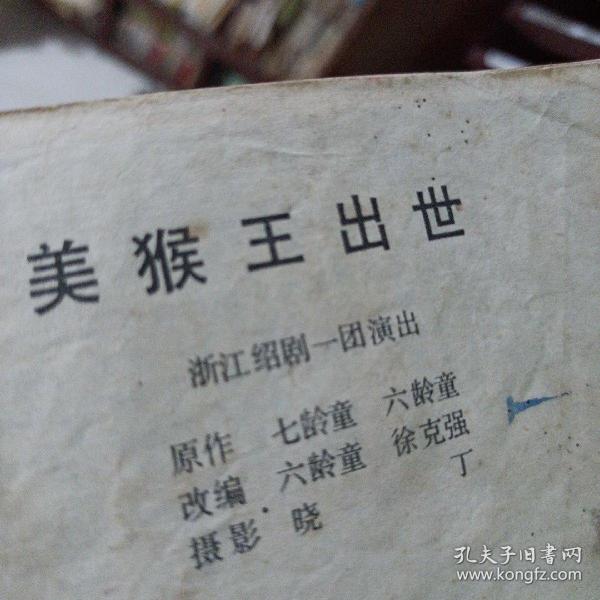 美猴王出世
浙江绍剧一团演出
原作 七龄童 六龄童
改编 六龄童 徐克强
摄影 晓 丁
孔夫子旧书网
www.kongfz.com